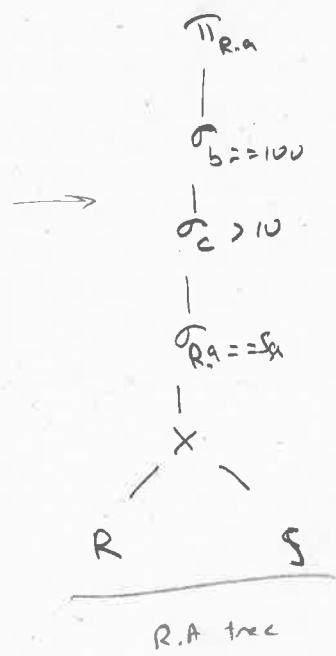 π R.a
σ b==100
σ c > 10
σ R.a==S.a
×
R S
R.A tree